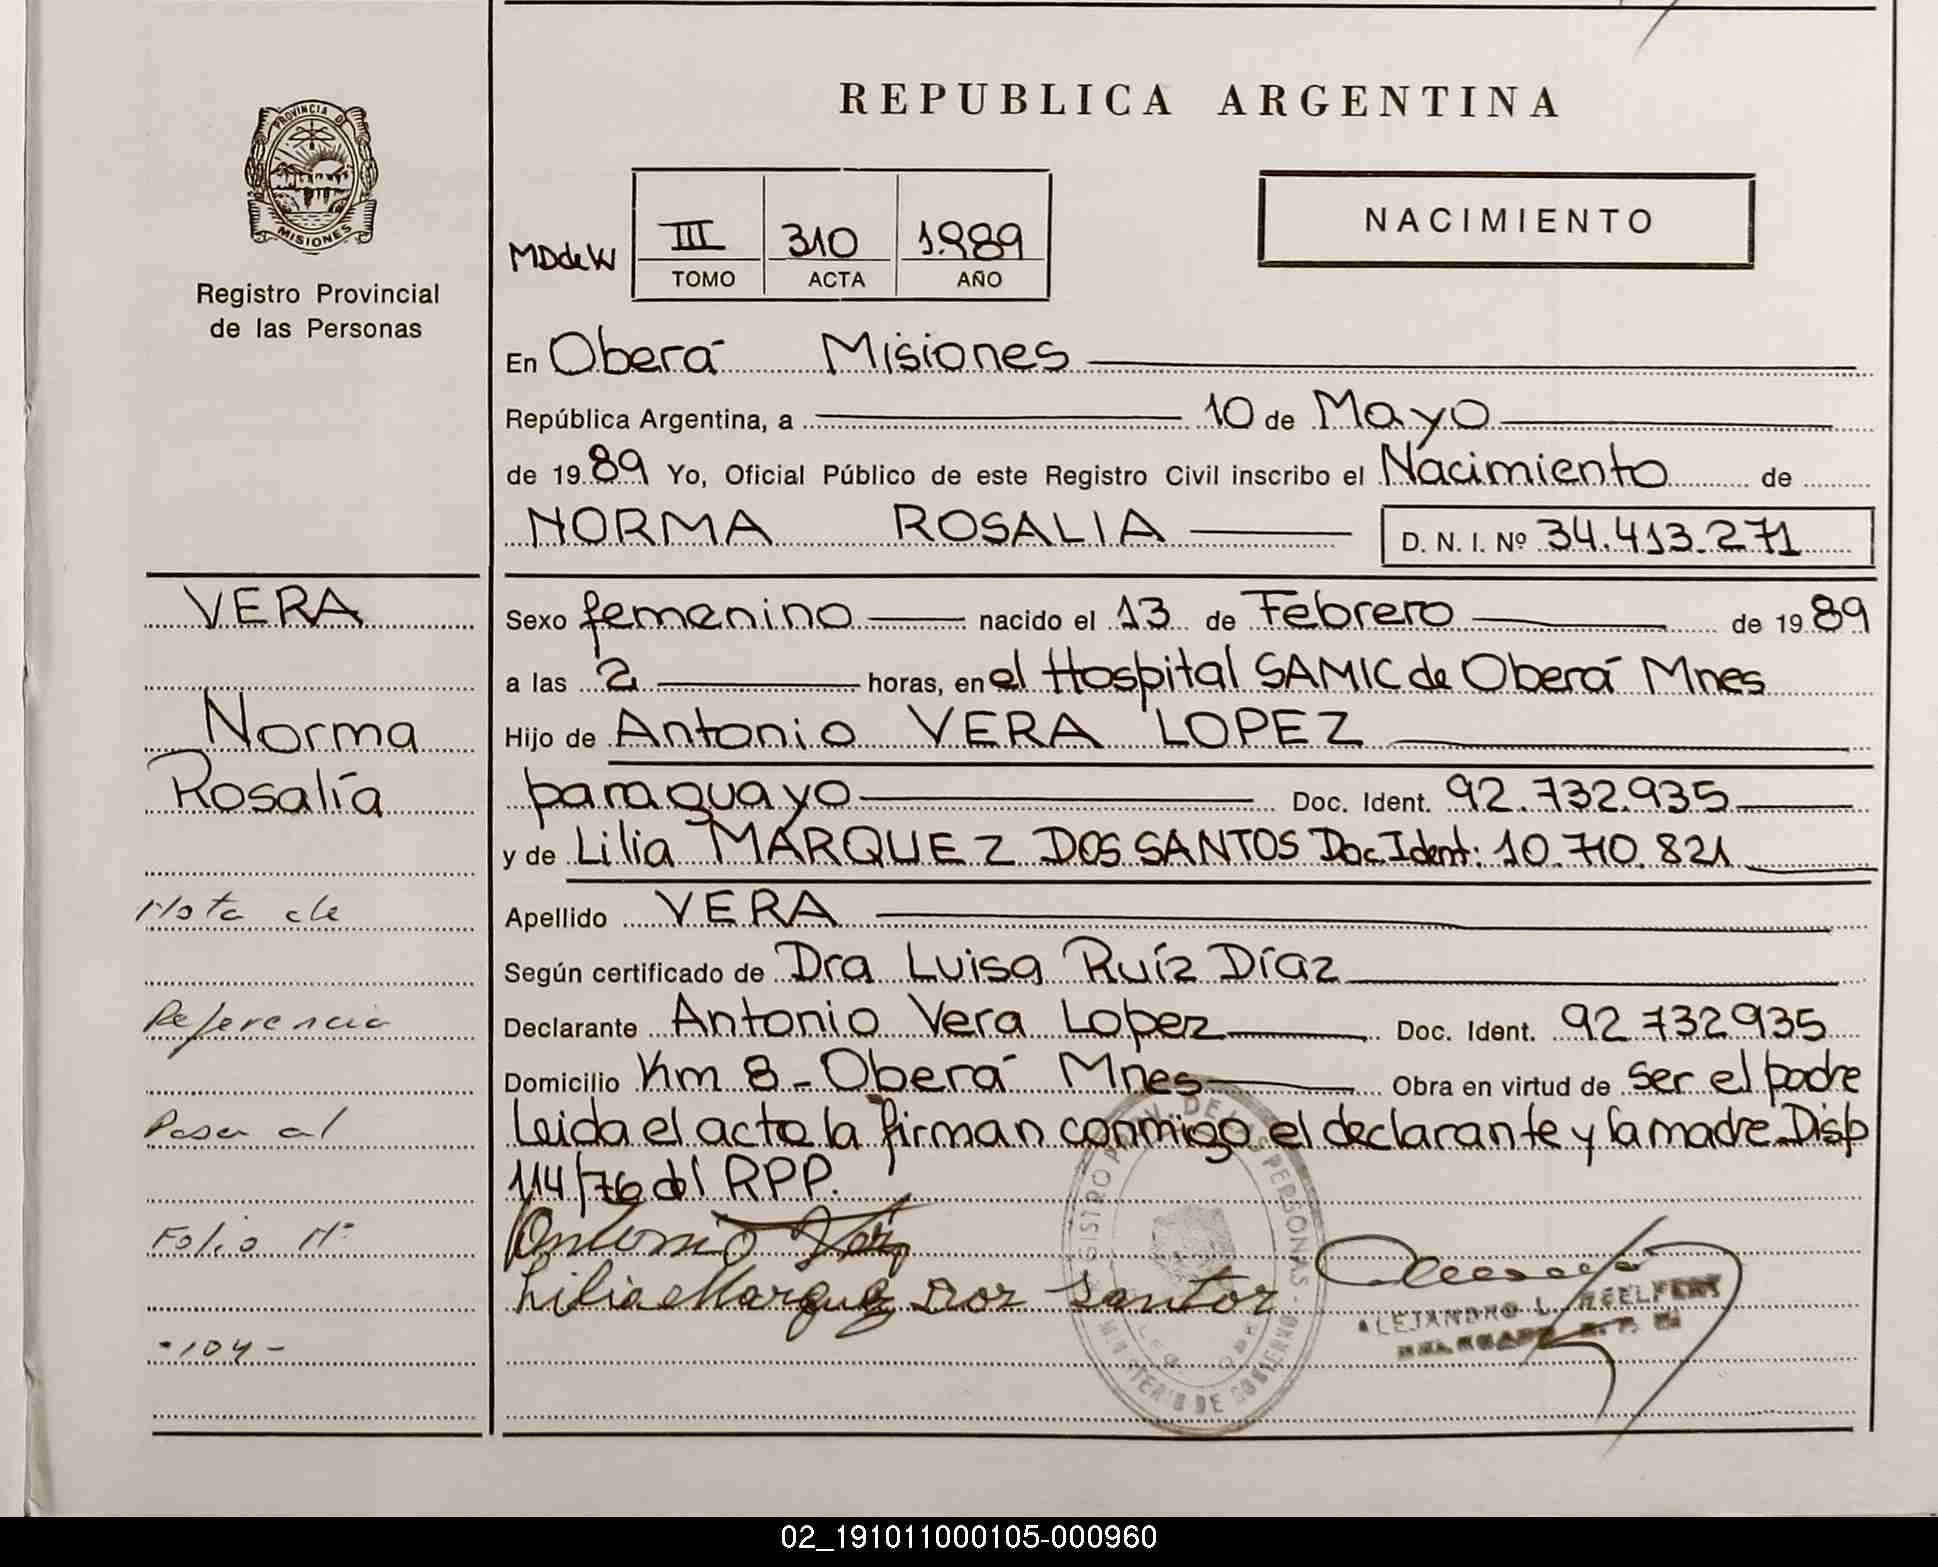 REPUBLICA ARGENTINA
PROVINCIA DE
MISIONES
Registro Provincial
de las Personas
NACIMIENTO
MDdeW III 310 1989
TOMO ACTA AÑO
En Oberá Misiones
República Argentina, a 10 de Mayo
de 1989 Yo, Oficial Público de este Registro Civil inscribo el Nacimiento de
NORMA ROSALIA D. N. I. Nº 34.413.271
VERA
Norma
Rosalía
Nota de
Referencia
Pasa al
Folio Nº
-104-
Sexo femenino nacido el 13 de Febrero de 1989
a las 2 horas, en el Hospital SAMIC de Oberá Mnes
Hijo de Antonio VERA LOPEZ
paraguayo Doc. Ident. 92.732.935
y de Lilia MARQUEZ DOS SANTOS Doc.Ident: 10.710.821
Apellido VERA
Según certificado de Dra Luisa Ruíz Díaz
Declarante Antonio Vera Lopez Doc. Ident. 92732935
Domicilio Km 8 - Oberá Mnes Obra en virtud de ser el padre
Leida el acta la firman conmigo el declarante y la madre Disp
114/76 del RPP.
Antonio Vera
Lilia Marquez Dos Santos
ALEJANDRO L.
02_191011000105-000960